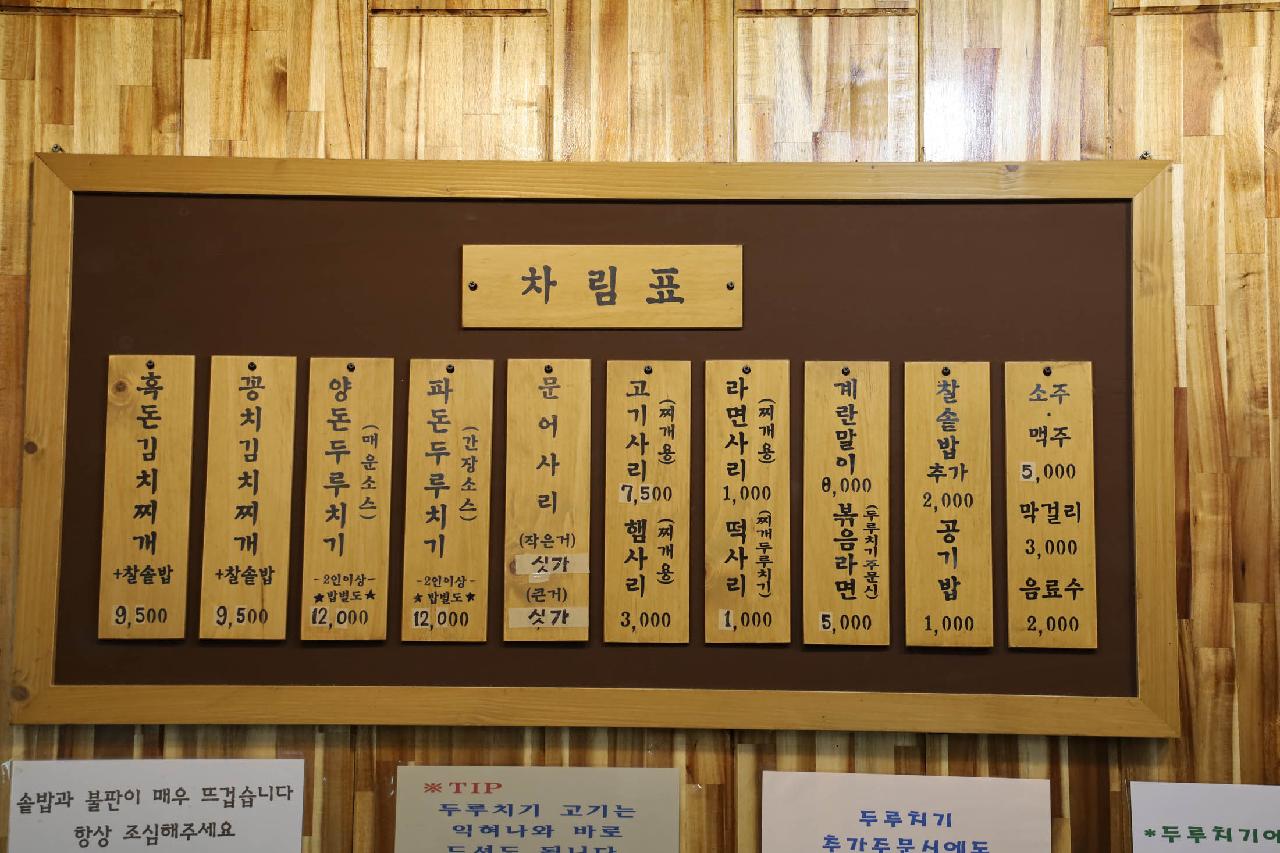 차림표
흑돈김치찌개
+찰솥밥
9,500
꽁치김치찌개
+찰솥밥
9,500
양돈두루치기
(매운소스)
-2인이상-
★밥별도★
12,000
파돈두루치기
(간장소스)
-2인이상-
★밥별도★
12,000
문어사리
(작은거)
싯가
(큰거)
싯가
고기사리
(찌개용)
7,500
햄사리
(찌개용)
3,000
라면사리
(찌개용)
1,000
떡사리
(찌개두루치기)
1,000
계란말이
8,000
볶음라면
(두루치기,주문시)
5,000
찰솥밥
추가
2,000
공기밥
1,000
소주
·
맥주
5,000
막걸리
3,000
음료수
2,000
솥밥과 불판이 매우 뜨겁습니다
항상 조심해주세요
※TIP
두루치기 고기는
익혀나와 바로
두루치기
추가주문시에도
*두루치기에